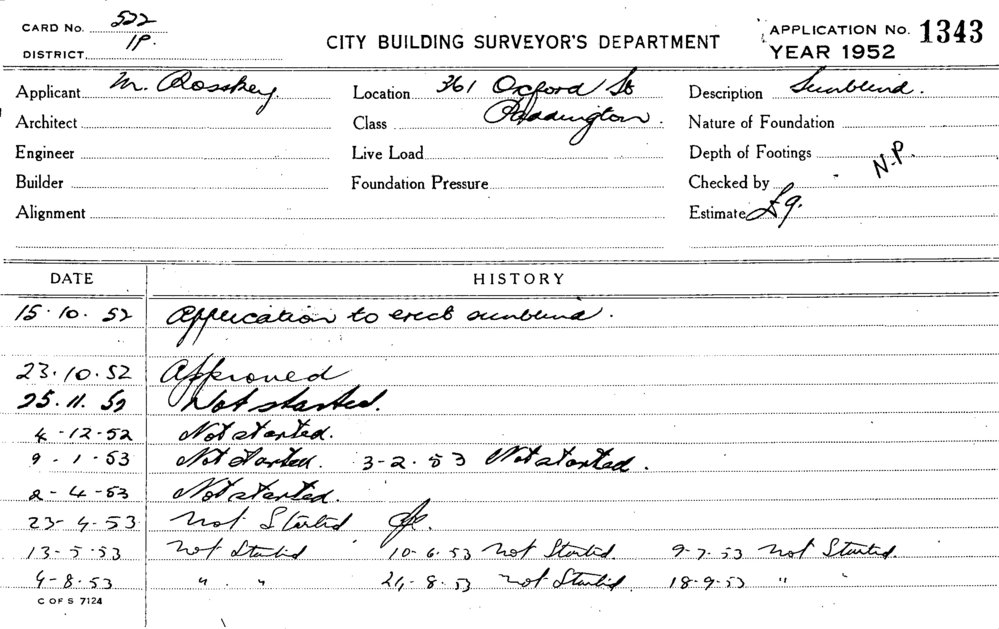 CARD No. 522
DISTRICT. 1P.
CITY BUILDING SURVEYOR'S DEPARTMENT
APPLICATION No. 1343
YEAR 1952
Applicant M. Rosskey Location 361 Oxford St Description Sunblind.
Architect Class Paddington. Nature of Foundation
Engineer Live Load Depth of Footings N.P.
Builder Foundation Pressure Checked by
Alignment Estimate £9.
DATE HISTORY
15.10.52 Application to erect sunblind.
23.10.52 Approved
25.11.52 Not started.
4-12-52 Not started.
9-1-53 Not started. 3-2-53 Not started.
2-4-53 Not started.
23-4-53 Not Started
13-5-53 Not Started 10-6-53 Not Started. 9-7-53 Not Started.
4-8-53 " " 24-8-53 Not Started. 18-9-53 " "
C OF S 7124